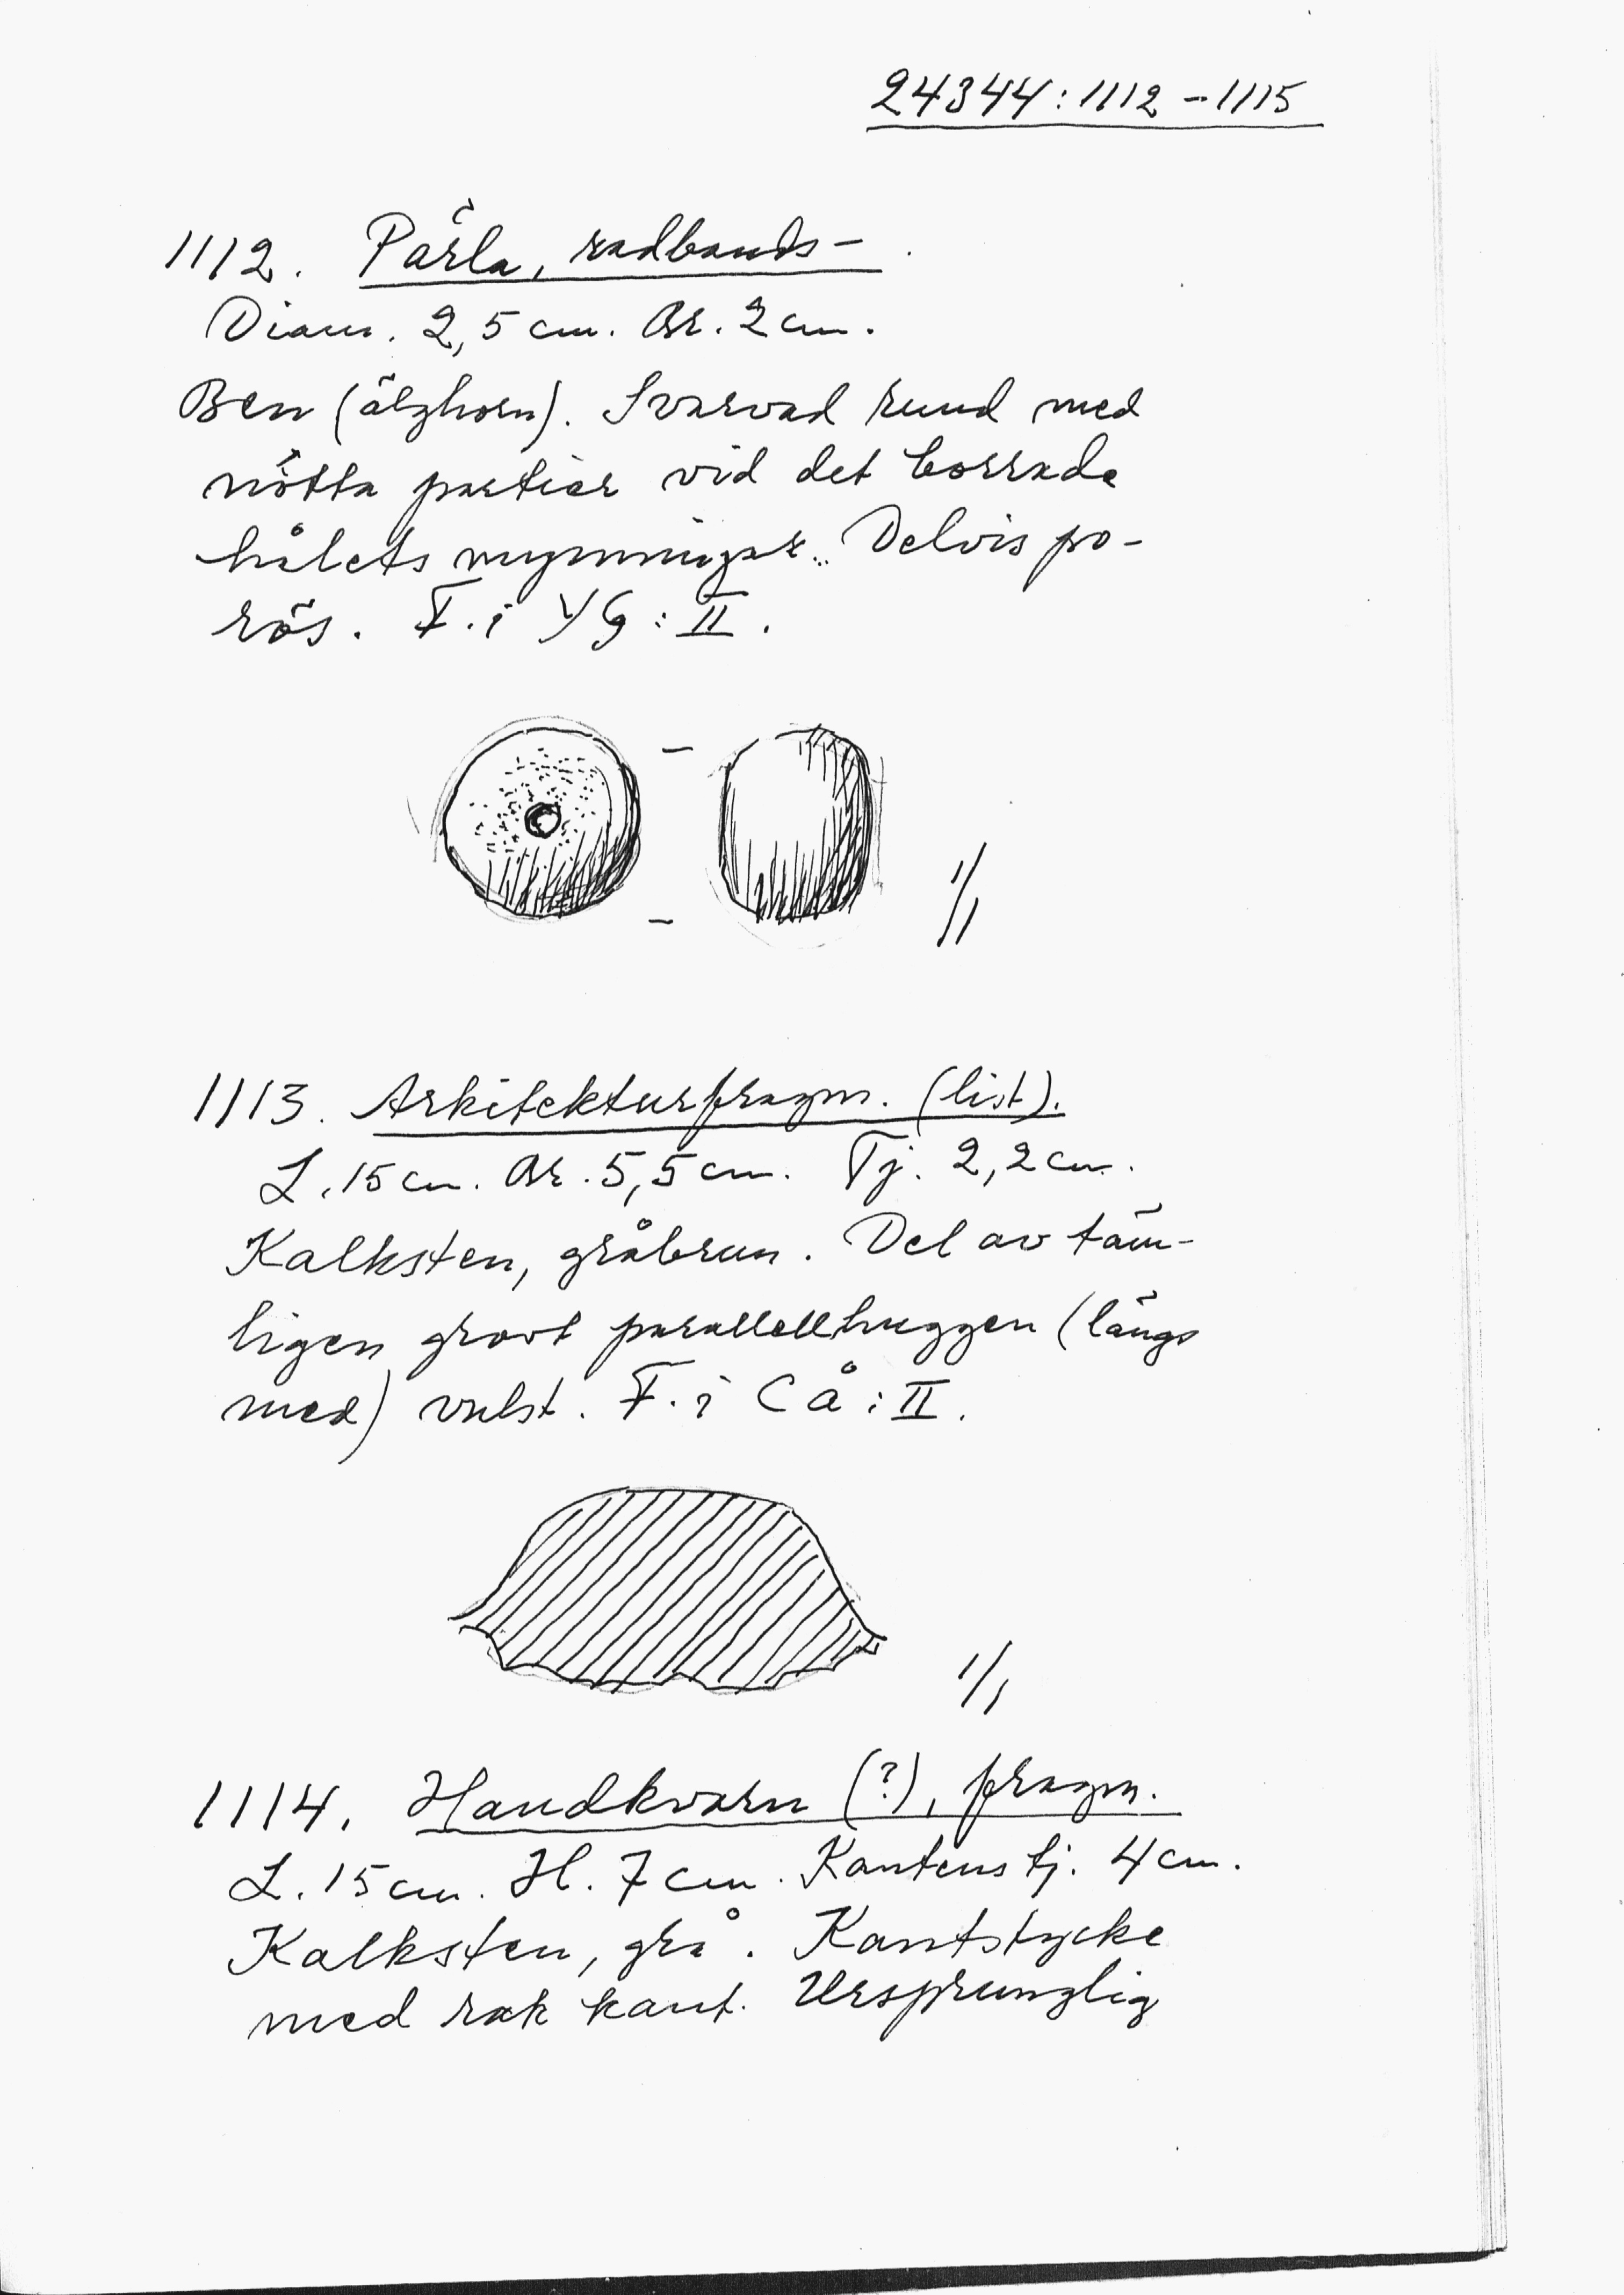 24344:1112-1115
1112. Pärla, radbands-
Diam. 2,5 cm. Br. 2 cm.
Ben (älghorn). Svarvad rund med
nötta partier vid det borrade
hålets mynningar. Delvis po-
rös. F. i YG:II.
1/1
1113. Arkitekturfragm. (list).
L. 15 cm. Br. 5,5 cm. Tj. 2,2 cm.
Kalksten, gråbrun. Del av täm-
ligen grovt parallellhuggen (längs
med) vulst. F. i CÅ:II.
1/1
1114. Handkvarn (?), fragm.
L. 15 cm. H. 7 cm. Kantens tj. 4 cm.
Kalksten, grå. Kantstycke
med rak kant. Ursprunglig